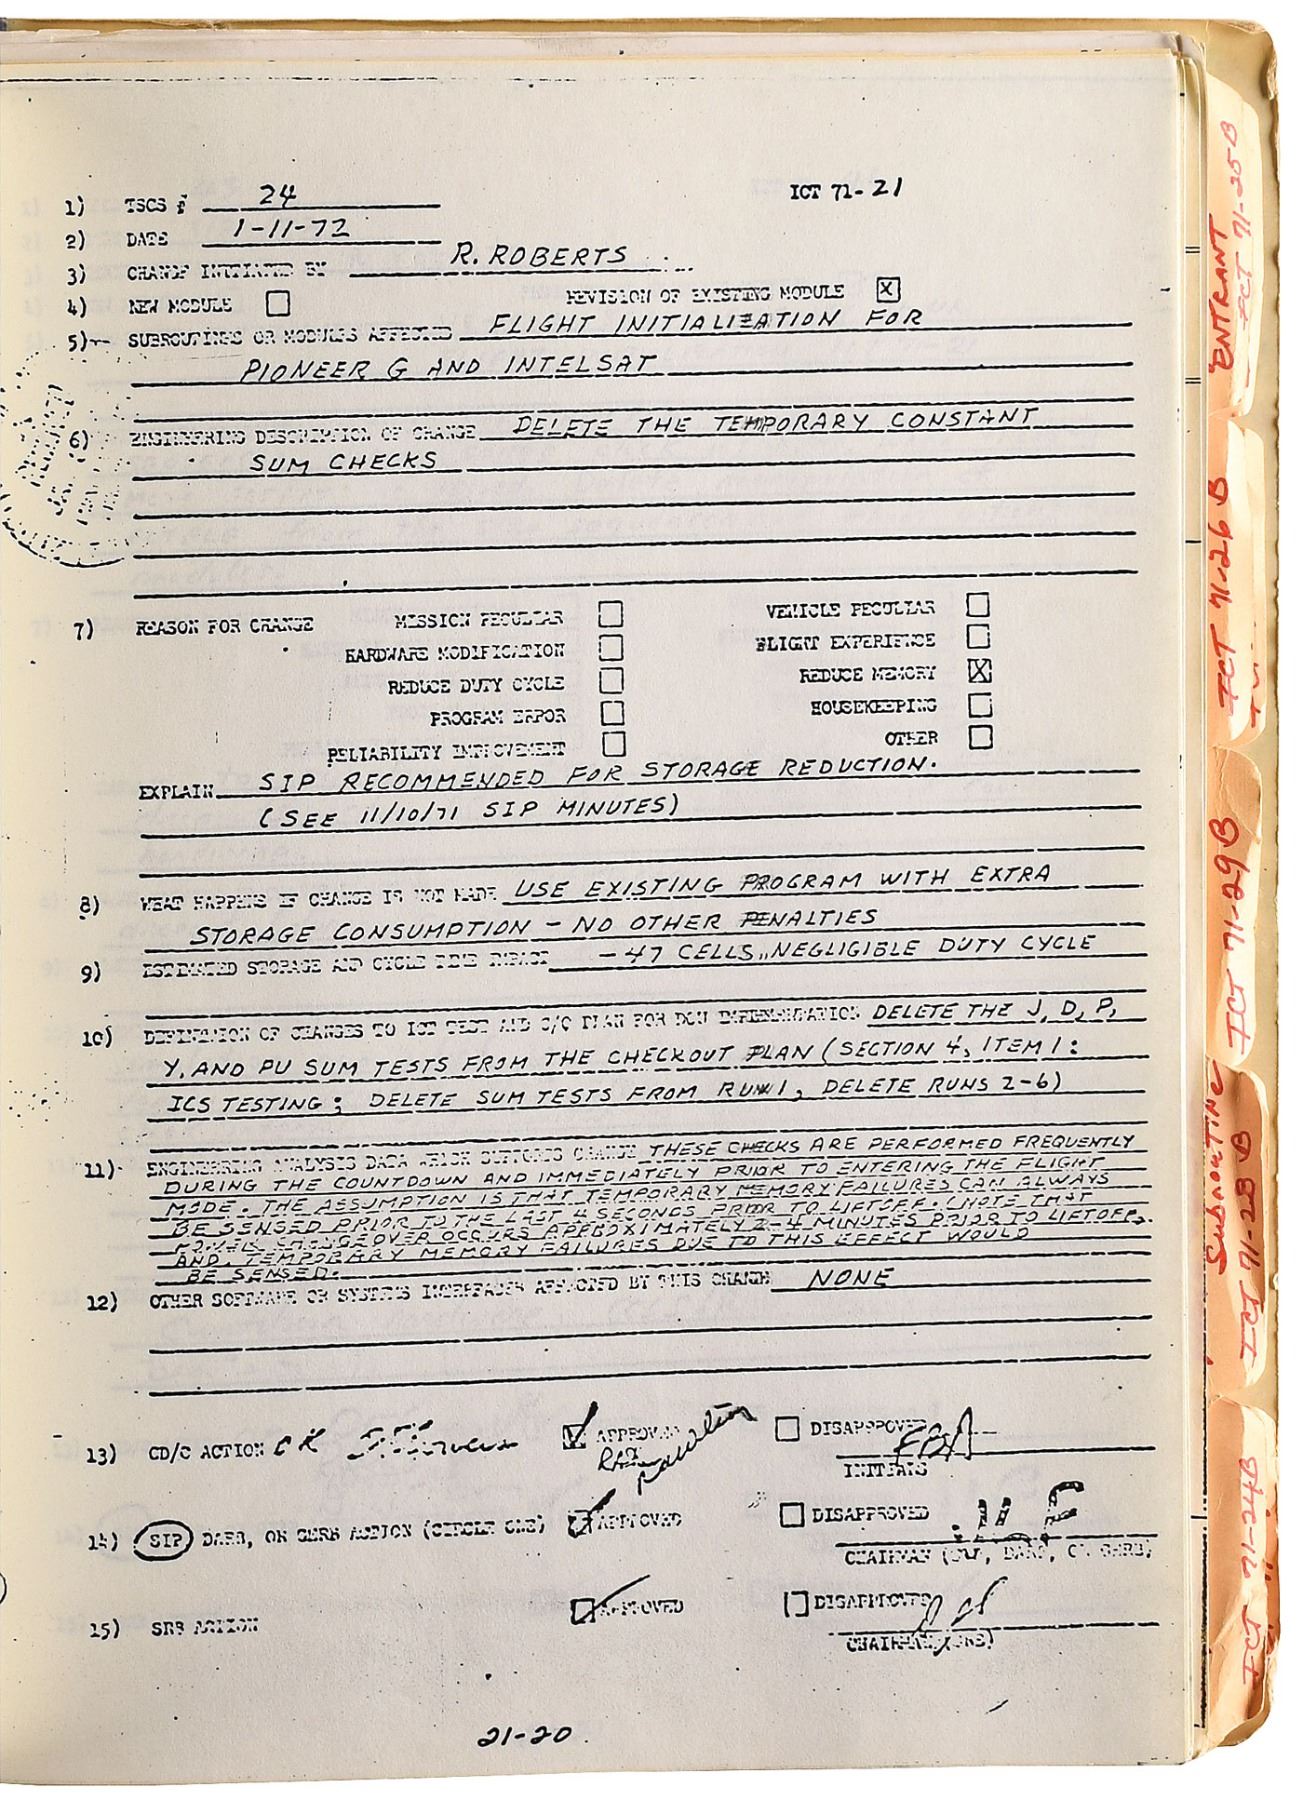 1) TSCS # 24 ICT 71-21
2) DATE 1-11-72
3) CHANGE INITIATED BY R. ROBERTS
4) NEW MODULE REVISION OF EXISTING MODULE X
5) SUBROUTINES OR MODULES AFFECTED FLIGHT INITIALIZATION FOR
PIONEER G AND INTELSAT
6) ENGINEERING DESCRIPTION OF CHANGE DELETE THE TEMPORARY CONSTANT
SUM CHECKS
7) REASON FOR CHANGE MISSION PECULIAR VEHICLE PECULIAR
HARDWARE MODIFICATION FLIGHT EXPERIENCE
REDUCE DUTY CYCLE REDUCE MEMORY X
PROGRAM ERROR HOUSEKEEPING
RELIABILITY IMPROVEMENT OTHER
EXPLAIN SIP RECOMMENDED FOR STORAGE REDUCTION.
(SEE 11/10/71 SIP MINUTES)
8) WHAT HAPPENS IF CHANGE IS NOT MADE USE EXISTING PROGRAM WITH EXTRA
STORAGE CONSUMPTION - NO OTHER PENALTIES
9) ESTIMATED STORAGE AND CYCLE TIME IMPACT -47 CELLS, NEGLIGIBLE DUTY CYCLE
10) DEFINITION OF CHANGES TO ICT TEST AND C/O PLAN FOR DCN IMPLEMENTATION DELETE THE J, D, P,
Y, AND PU SUM TESTS FROM THE CHECKOUT PLAN (SECTION 4, ITEM 1:
ICS TESTING; DELETE SUM TESTS FROM RUN 1, DELETE RUNS 2-6)
11) ENGINEERING ANALYSIS DATA WHICH SUPPORTS CHANGE THESE CHECKS ARE PERFORMED FREQUENTLY
DURING THE COUNTDOWN AND IMMEDIATELY PRIOR TO ENTERING THE FLIGHT
MODE. THE ASSUMPTION IS THAT TEMPORARY MEMORY FAILURES CAN ALWAYS
BE SENSED PRIOR TO THE LAST 4 SECONDS PRIOR TO LIFTOFF. (NOTE THAT
POWER CHANGEOVER OCCURS APPROXIMATELY 2-4 MINUTES PRIOR TO LIFTOFF,
AND TEMPORARY MEMORY FAILURES DUE TO THIS EFFECT WOULD
BE SENSED.
12) OTHER SOFTWARE OR SYSTEMS INTERFACES AFFECTED BY THIS CHANGE NONE
13) CD/C ACTION OK APPROVED DISAPPROVED
INITIALS
14) SIP DARB, OR GERB ACTION (CIRCLE ONE) APPROVED DISAPPROVED
CHAIRMAN (SIP, DARB, OR GERB)
15) SRB ACTION APPROVED DISAPPROVED
CHAIRMAN (SRB)
21-20
ENTRANT
ICT 71-25B
ICT 71-26 B
ICT 71-29 B
SUBROUTINE
ICT 71-28 B
ICT 71-24B